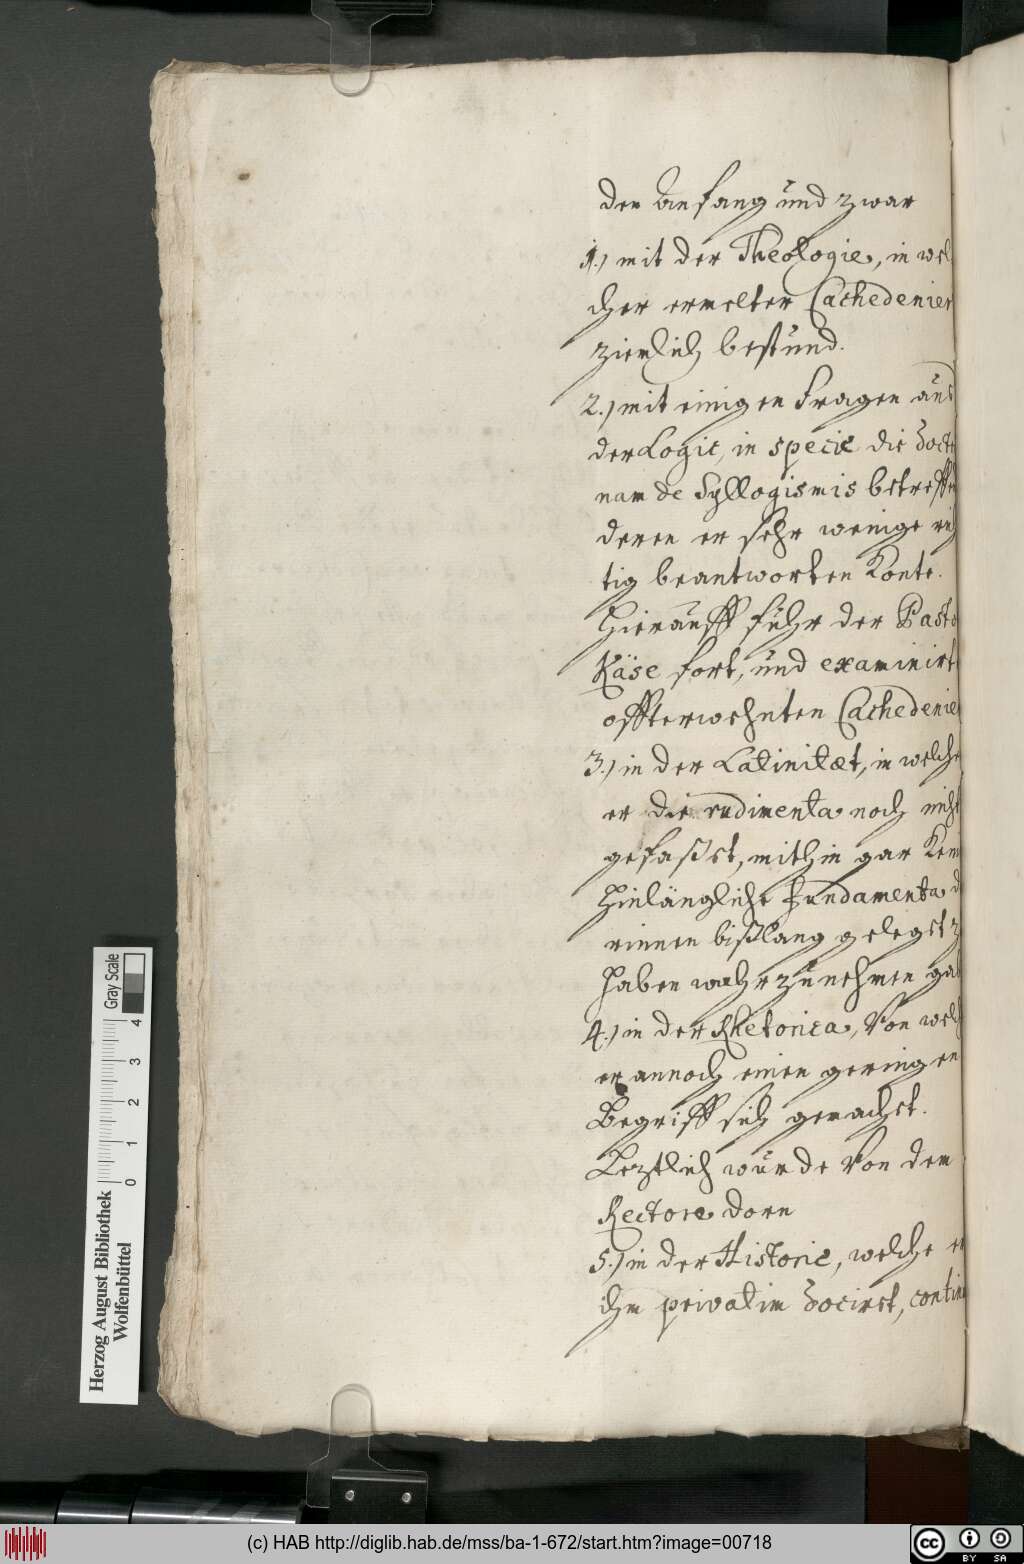 den Anfang und zwar
1.) mit der Theologie, in wel
cher ermelter Cachedenier
ziemlich bestund.
2.) mit einigen Fragen aus
der Logic, in specie die Doctri
nam de Syllogismis betreffen
deren er sehr wenige rich
tig beantworten konte.
Hierauff fuhr der Pasto
Käse fort, und examinirt
offterwehnten Cachedenie
3.) in der Latinitæt, in welche
er die rudimenta noch nicht
gefaßet, mithin gar kein
hinlängliche fundamenta d
rinnen bißlang geleget z
haben wahrzunehmen gab
4.) in der Rhetorica, von welch
er annoch einen geringen
Begriff sich gemachet.
Leztlich wurde von dem
Rectore dorn
5.) in der Historie, welche er
ihm privatim dociret, contin
Herzog August Bibliothek
Wolfenbüttel
0 1 2 3 4
Gray Scale
(c) HAB http://diglib.hab.de/mss/ba-1-672/start.htm?image=00718
cc BY SA